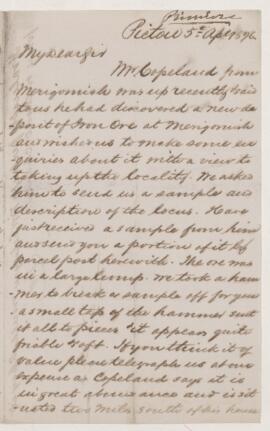 Pictou 5th Apl 1896
My Dear Sir
Mr Copeland from
Merigomish was up recently & said
to us he had discovered a new de-
posit of Iron Ore at Merigomish
and wished us to make some en
quiries about it with a view to
taking up the locality. We asked
him to send us a sample and
description of the locus. Have
just received a sample from him
and send you a portion of it by
parcel post herewith. The ore was
in a large lump. We took a ham
mer to break a sample off for you
a small tap of the hammer sent
it all to pieces & it appears quite
friable & soft. If you think it of
value please telegraph us at our
expense as Copeland says it is
in great abundance and is sit
uated two miles south of his house